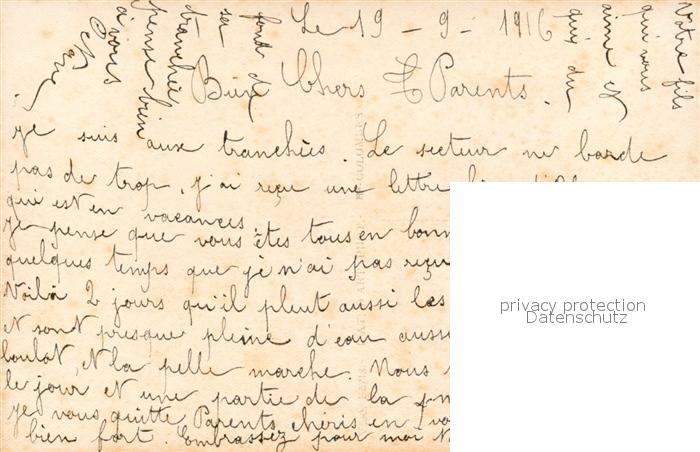 Le 19 - 9 - 1916
Bien Chers Parents.
Je suis aux tranchées. Le secteur ne barde
pas de trop, j'ai reçu une lettre
qui est en vacances.
Je pense que vous êtes tous en bonn
quelques temps que je n'ai pas reçu
Voilà 2 jours qu'il pleut aussi les
et sont presque pleine d'eau auss
boulot, et la pelle marche. Nous
le jour et une partie de la
Je vous quitte Parents chéris en
bien fort. Embrassez pour moi
Votre fils
qui vous
aime et
qui du
fond de
sa
tranchée
pense bien
à vous
privacy protection
Datenschutz